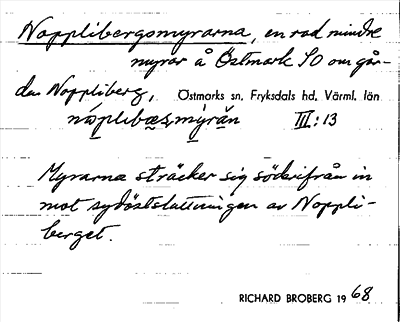 Nopplibergsmyrarna, en rad mindre
myrar å Östmark SO om går-
den Noppliberg, Östmarks sn, Fryksdals hd, Värml. län
III:13
Myrarna sträcker sig söderifrån in
mot sydöstsluttningen av Noppli-
berget.
RICHARD BROBERG 1968